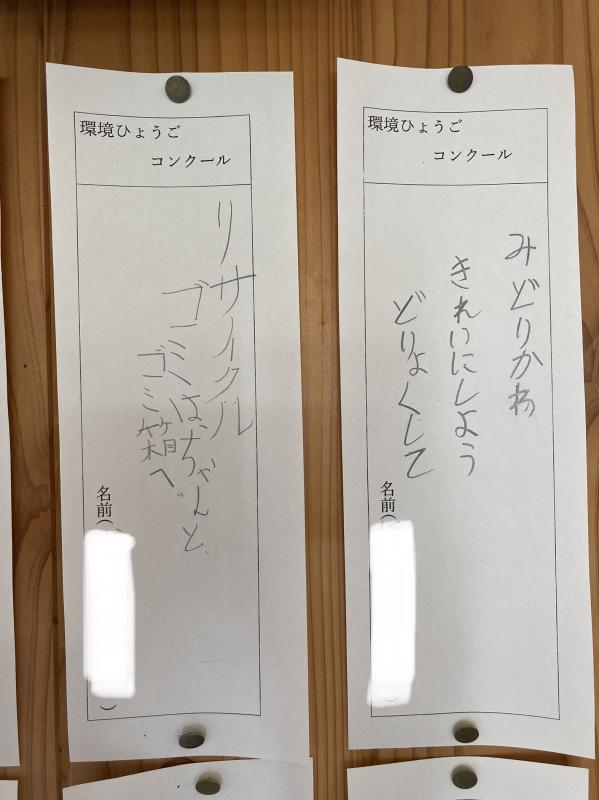 環境ひょうご
コンクール
みどりかわ
きれいにしよう
どりょくして
名前(
環境ひょうご
コンクール
リサイクル
ゴミはちゃんと、
ゴミ箱へ。
名前(